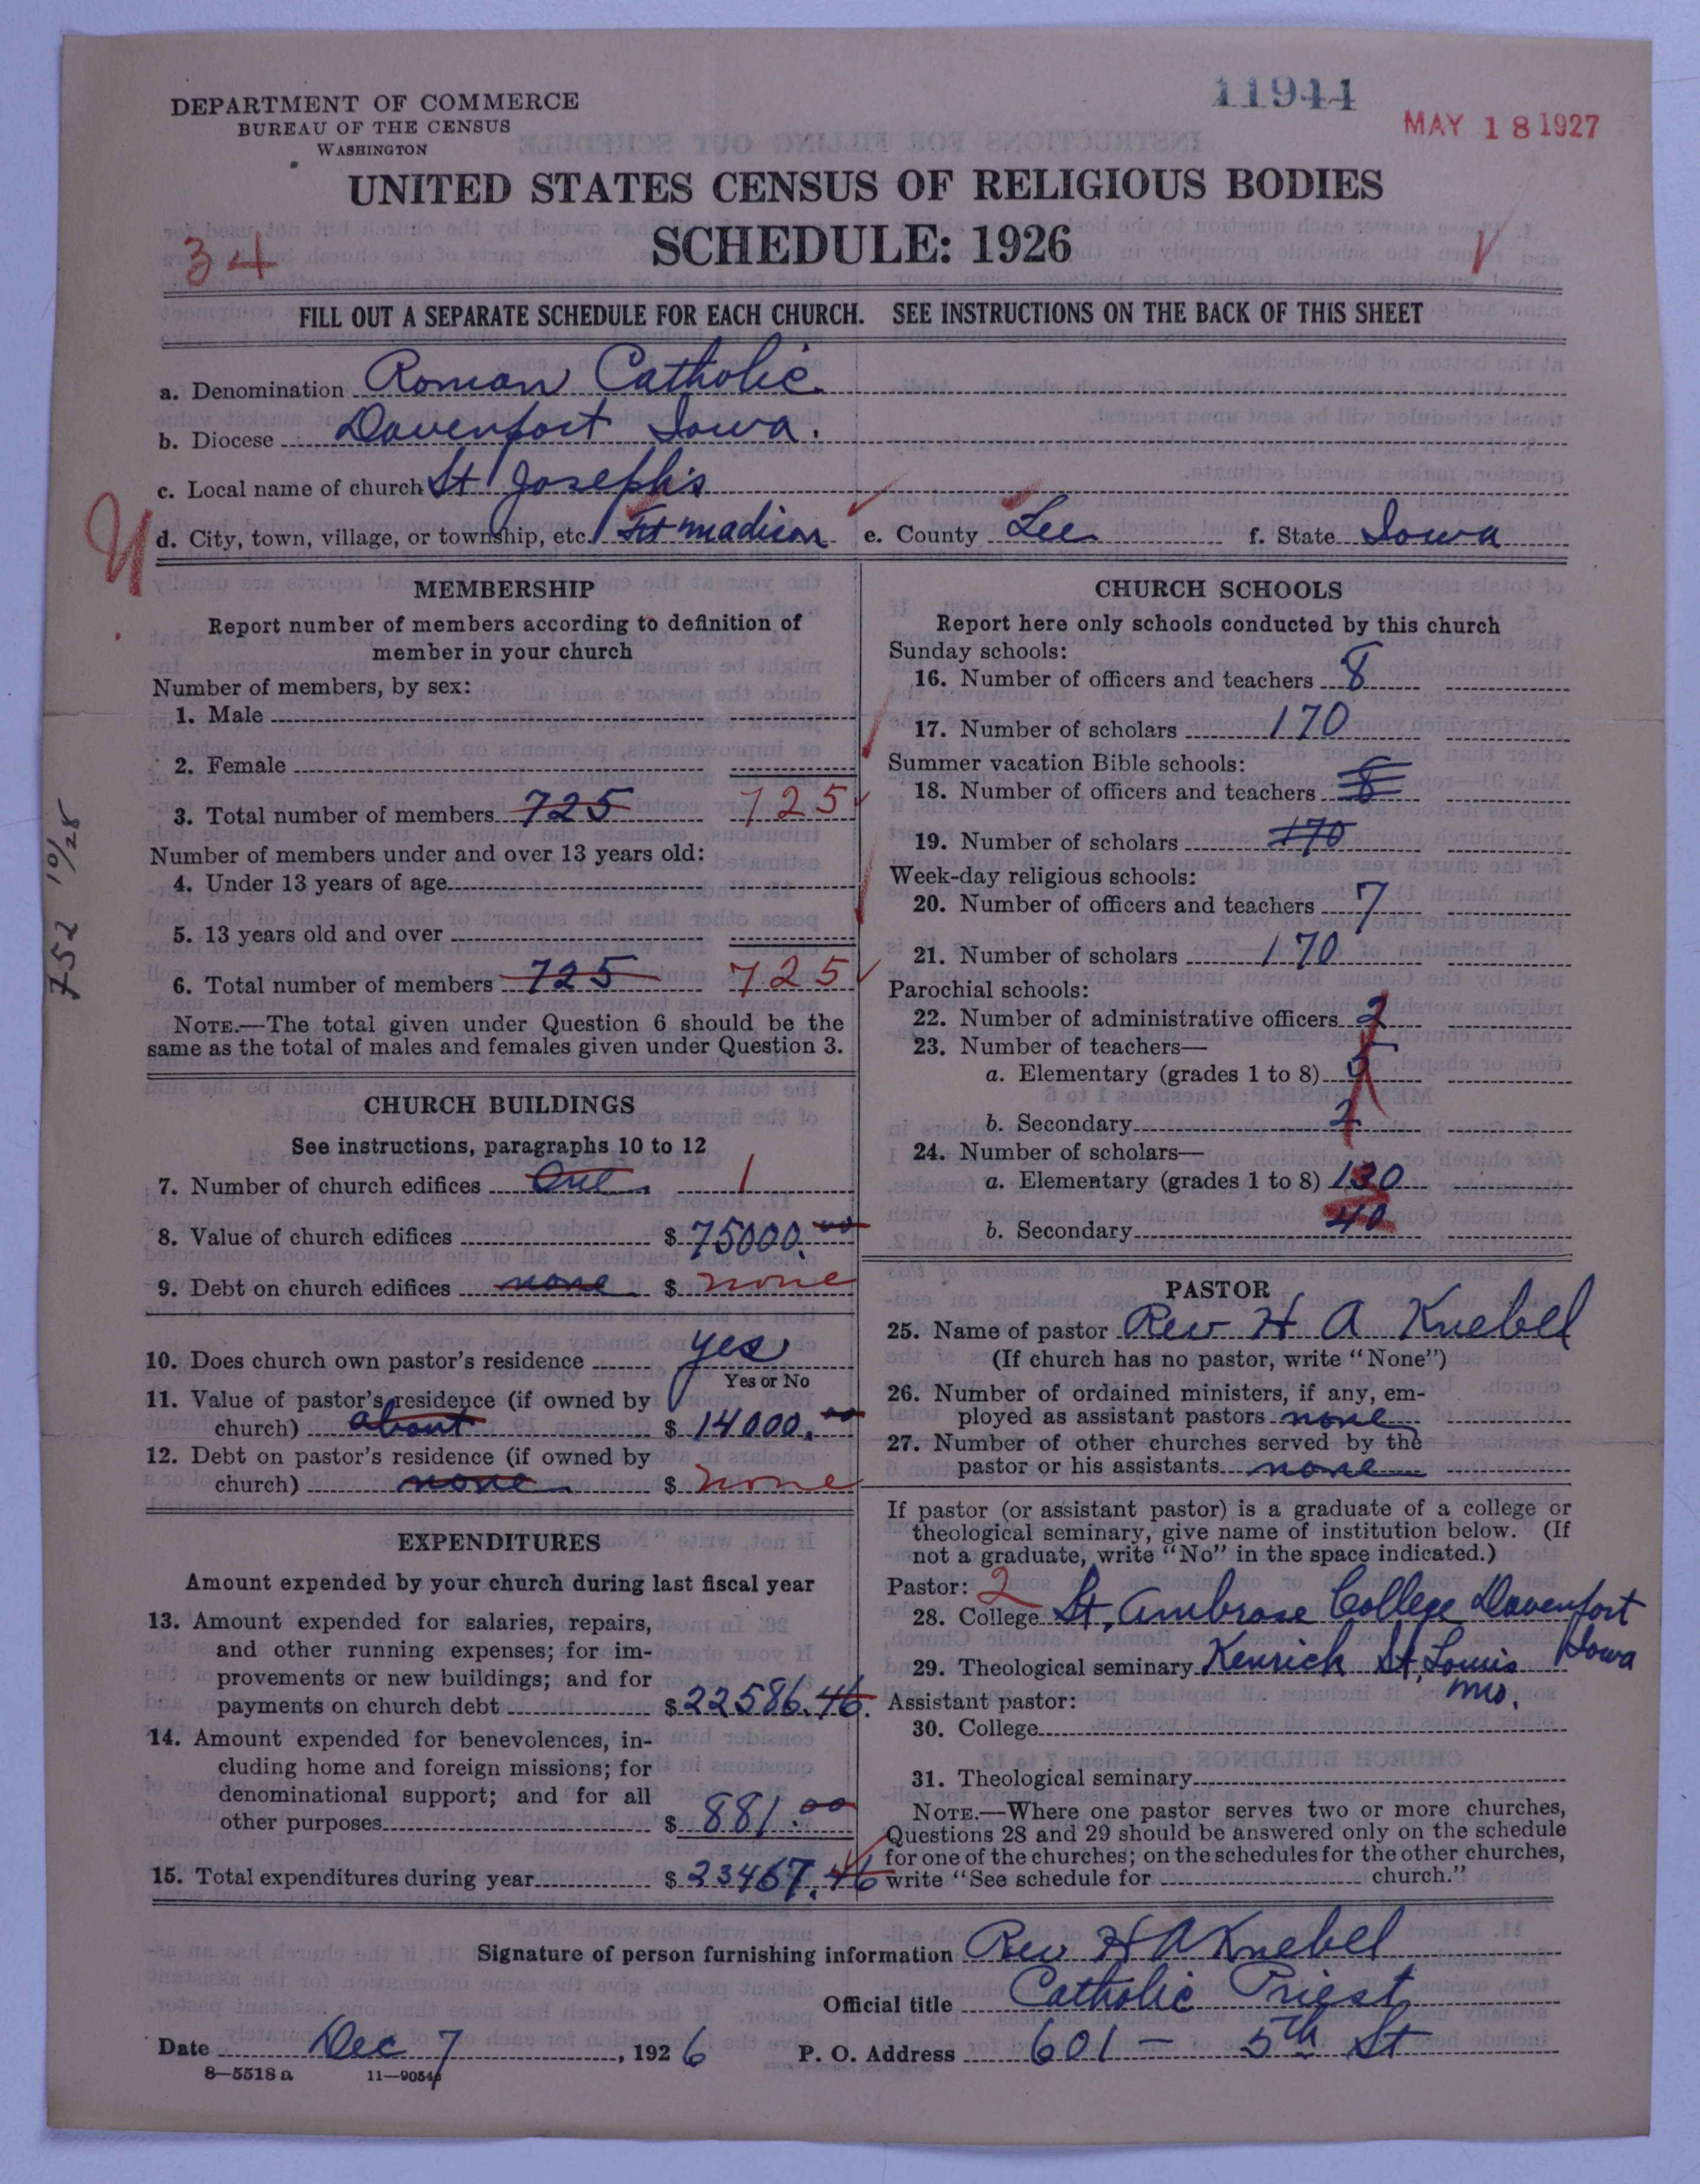 11944
MAY 18 1927
DEPARTMENT OF COMMERCE
BUREAU OF THE CENSUS
WASHINGTON
UNITED STATES CENSUS OF RELIGIOUS BODIES
SCHEDULE: 1926
34
FILL OUT A SEPARATE SCHEDULE FOR EACH CHURCH. SEE INSTRUCTIONS ON THE BACK OF THIS SHEET
a. Denomination Roman Catholic
b. Diocese Davenport Iowa.
c. Local name of church St Joseph's
d. City, town, village, or township, etc. Ft Madison e. County Lee f. State Iowa
752 10/28
MEMBERSHIP
Report number of members according to definition of
member in your church
Number of members, by sex:
1. Male
2. Female
3. Total number of members 725 725
Number of members under and over 13 years old:
4. Under 13 years of age
5. 13 years old and over
6. Total number of members 725 725
NOTE.—The total given under Question 6 should be the
same as the total of males and females given under Question 3.
CHURCH BUILDINGS
See instructions, paragraphs 10 to 12
7. Number of church edifices One 1
8. Value of church edifices $ 75000.00
9. Debt on church edifices none $ none
10. Does church own pastor's residence yes
Yes or No
11. Value of pastor's residence (if owned by
church) about $ 14000.00
12. Debt on pastor's residence (if owned by
church) none $ none
EXPENDITURES
Amount expended by your church during last fiscal year
13. Amount expended for salaries, repairs,
and other running expenses; for im-
provements or new buildings; and for
payments on church debt $ 22586.46.
14. Amount expended for benevolences, in-
cluding home and foreign missions; for
denominational support; and for all
other purposes $ 881.00
15. Total expenditures during year $ 23467.46
CHURCH SCHOOLS
Report here only schools conducted by this church
Sunday schools:
16. Number of officers and teachers 8
17. Number of scholars 170
Summer vacation Bible schools:
18. Number of officers and teachers 8
19. Number of scholars 170
Week-day religious schools:
20. Number of officers and teachers 7
21. Number of scholars 170
Parochial schools:
22. Number of administrative officers 2
23. Number of teachers—
a. Elementary (grades 1 to 8) 5
b. Secondary 2
24. Number of scholars—
a. Elementary (grades 1 to 8) 130
b. Secondary 40
PASTOR
25. Name of pastor Rev H A Knebel
(If church has no pastor, write "None")
26. Number of ordained ministers, if any, em-
ployed as assistant pastors none
27. Number of other churches served by the
pastor or his assistants none
If pastor (or assistant pastor) is a graduate of a college or
theological seminary, give name of institution below. (If
not a graduate, write "No" in the space indicated.)
Pastor: 2
28. College St. Ambrose College Davenport
Iowa
29. Theological seminary Kenrick St. Louis
Mo.
Assistant pastor:
30. College
31. Theological seminary
NOTE.—Where one pastor serves two or more churches,
Questions 28 and 29 should be answered only on the schedule
for one of the churches; on the schedules for the other churches,
write "See schedule for church."
Signature of person furnishing information Rev H A Knebel
Official title Catholic Priest
Date Dec 7, 1926 P. O. Address 601 – 5th St
8—5518 a 11—9054